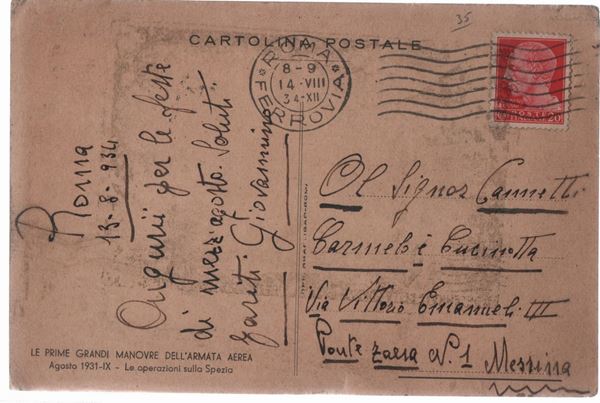 35
CARTOLINA POSTALE
ROMA
FERROVIA
8-9
14·VIII
34-XII
20
Roma
13-8-934
Auguri per le feste
di mezz'agosto. Saluti.
Giovannino
Al Signor Cannetti
Carmelo è Cucinotta
Via Vittorio Emanueli III
Ponte N. 1 Messina
LE PRIME GRANDI MANOVRE DELL'ARMATA AEREA
Agosto 1931-IX - Le operazioni sulla Spezia